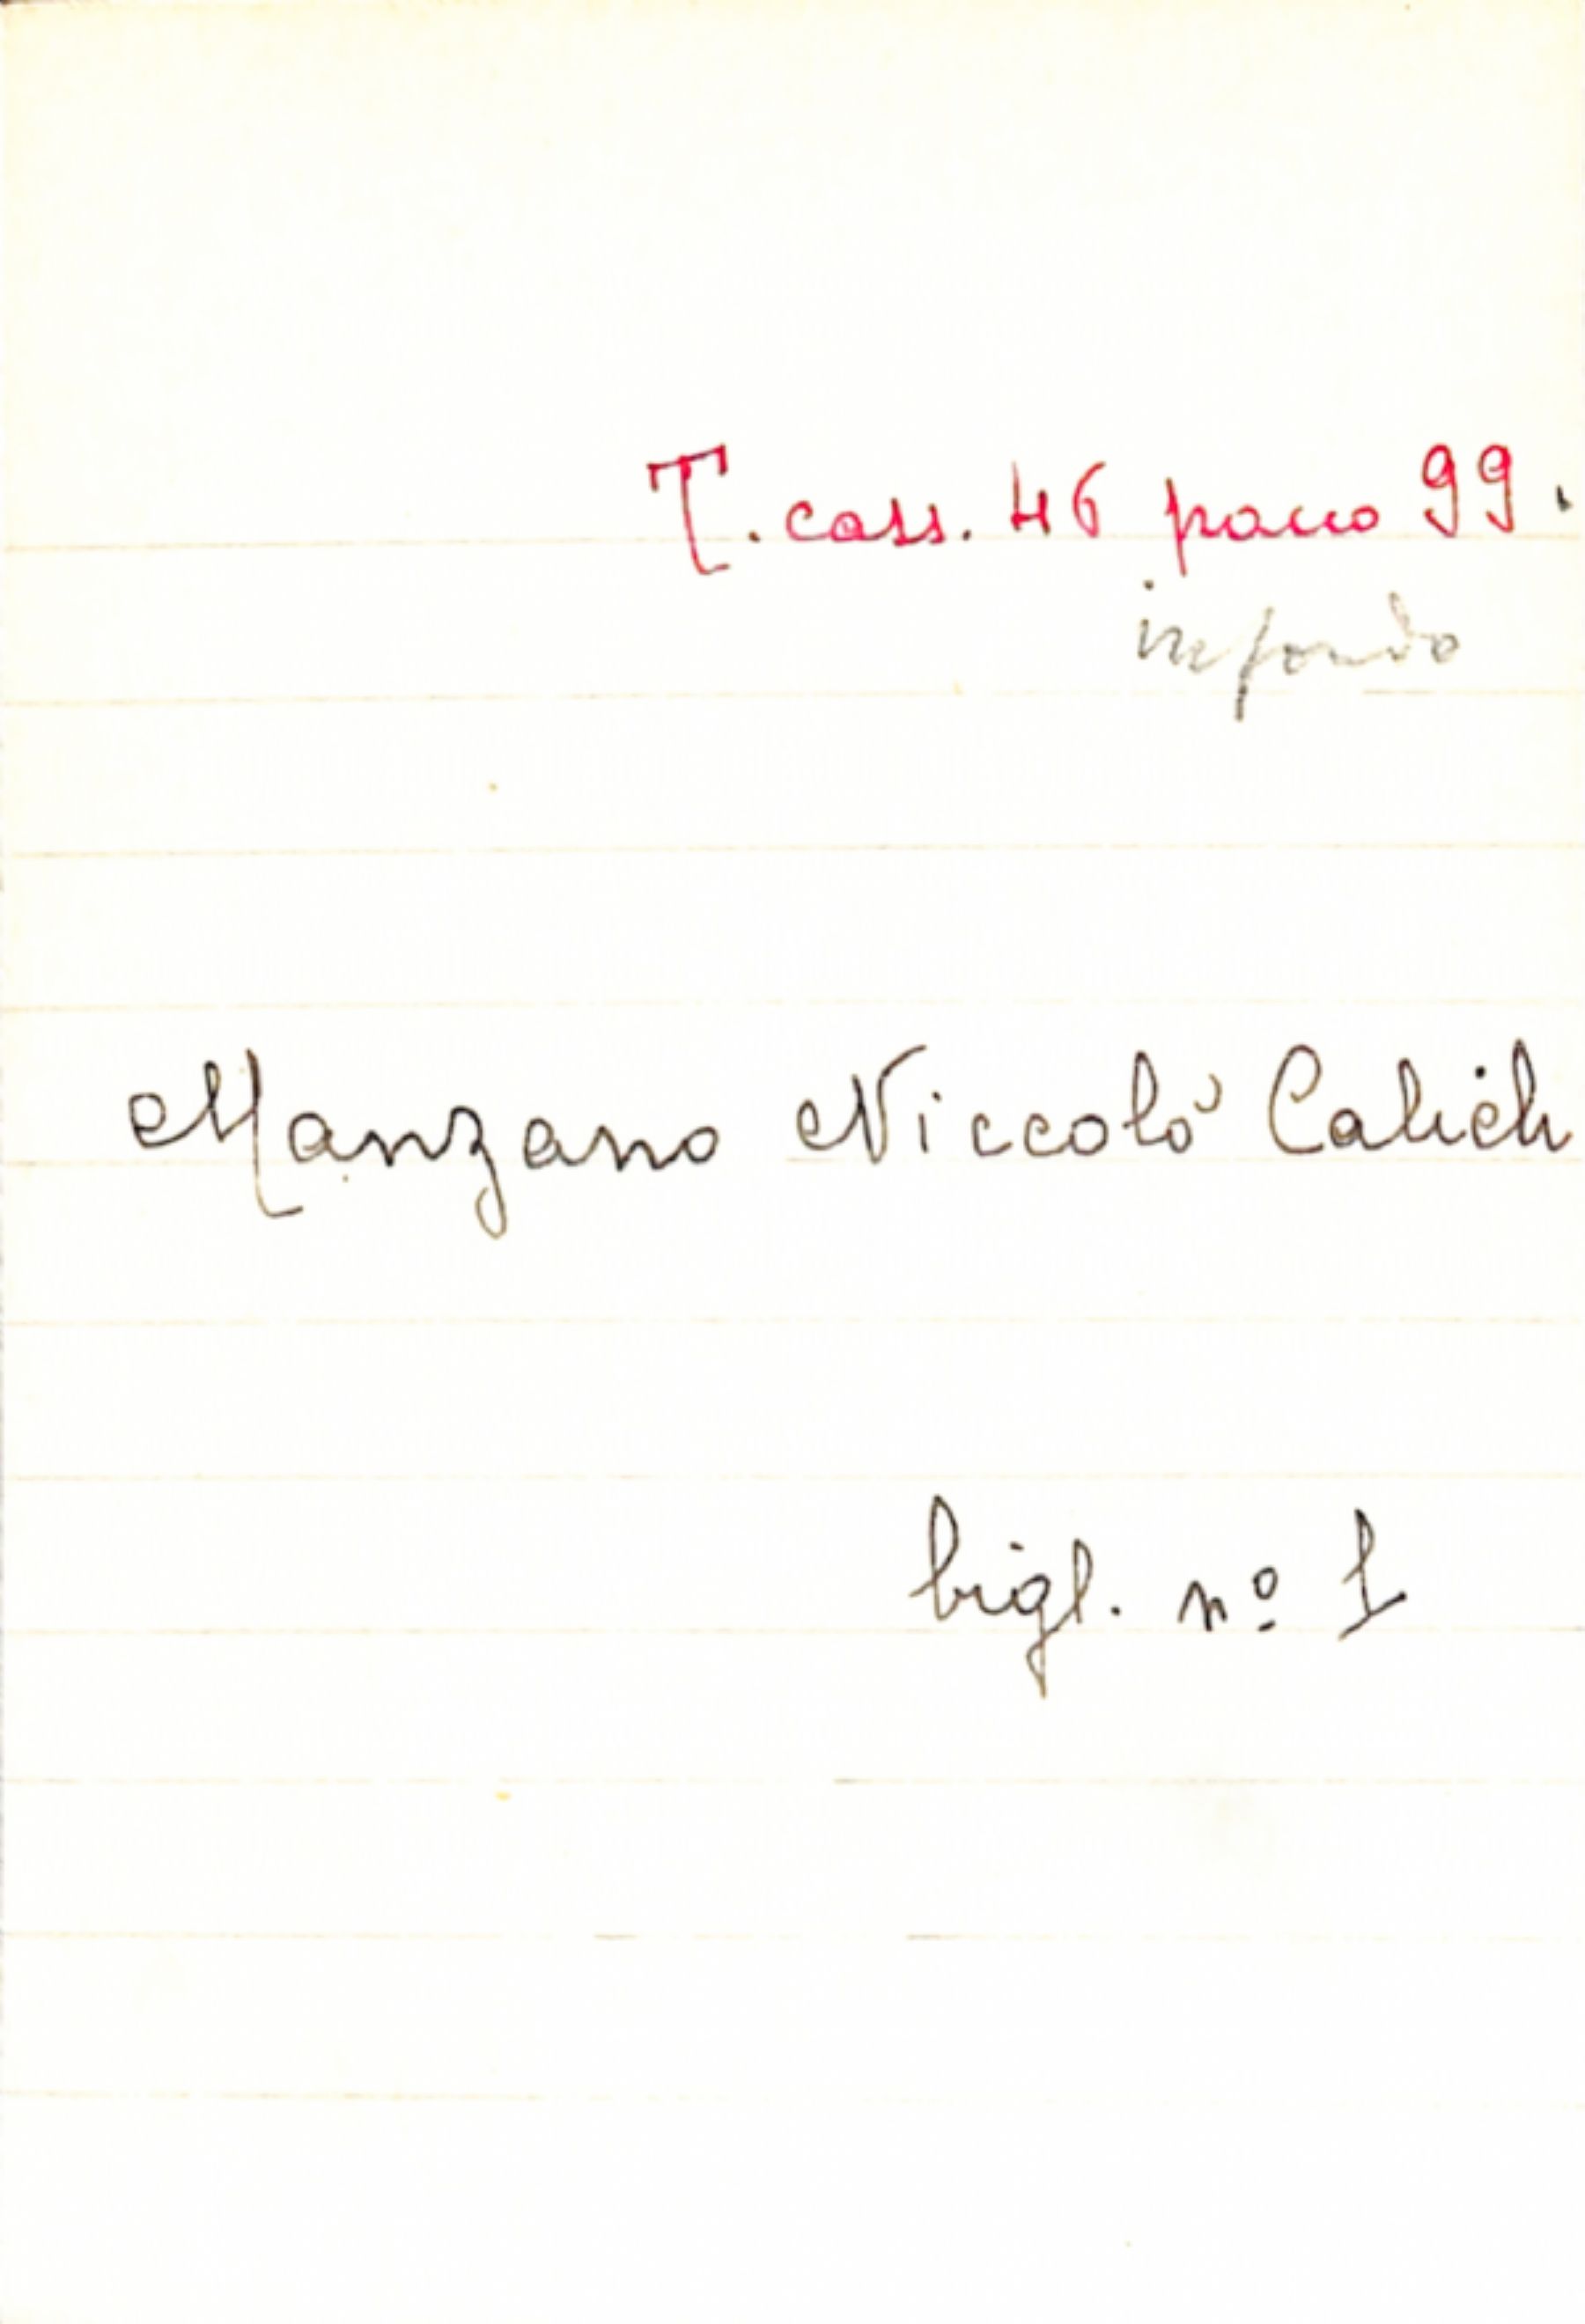 T. cass. 46 pacco 99.
in fondo
Manzano Niccolò Calich
bigl. nº 1